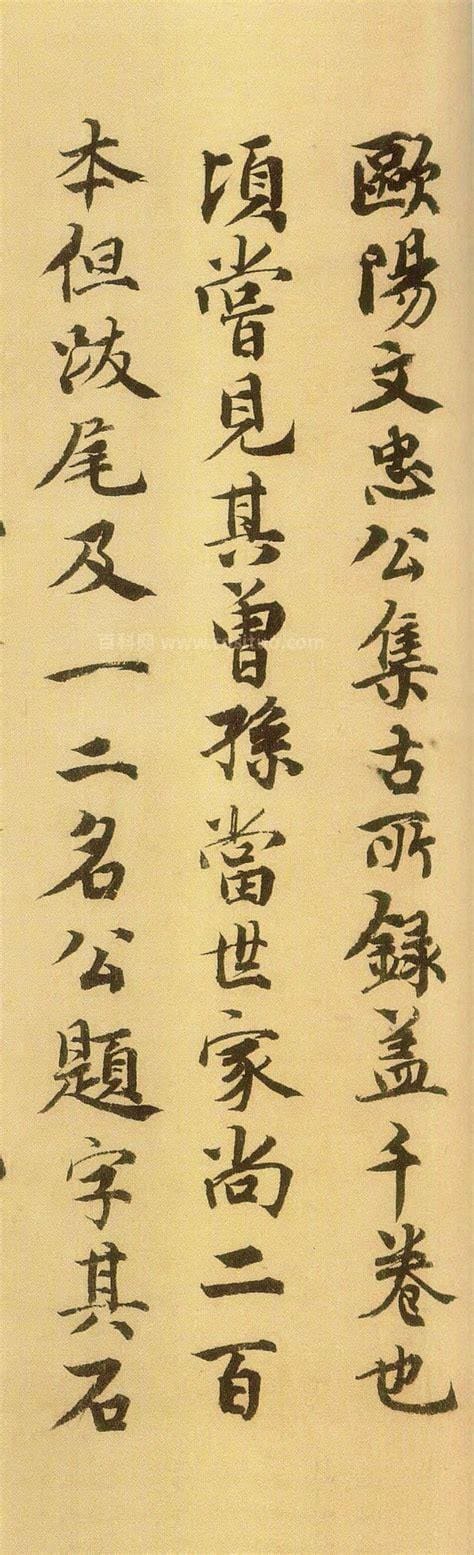 歐陽文忠公集古所録盖千卷也
頃嘗見其曽孫當世家尚二百
本但跋尾及一二名公題字其石